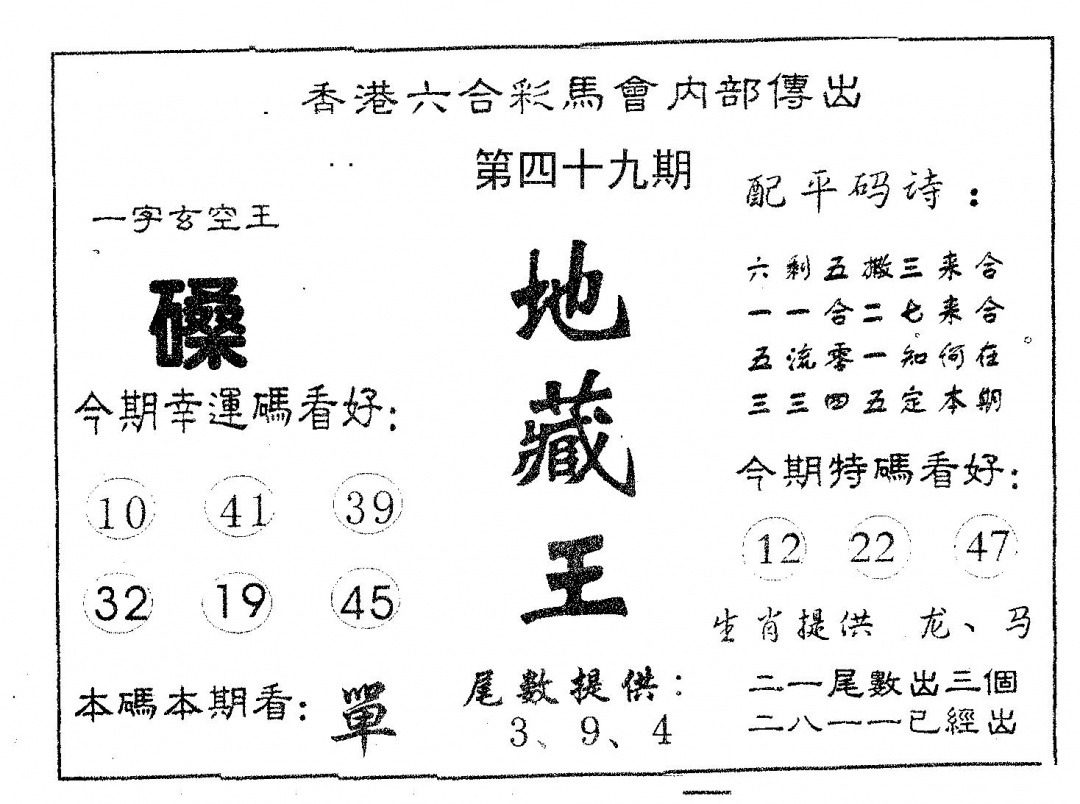 香港六合彩馬會内部傳出
第四十九期
一字玄空王
磉
今期幸運碼看好：
10 41 39
32 19 45
本碼本期看：單
地
藏
王
尾數提供：
3、9、4
配平码诗：
六剩五撒三来合
一一合二七来合
五流零一知何在
三三四五定本期
今期特碼看好：
12 22 47
生肖提供 龙、马
二一尾數出三個
二八一一已經出